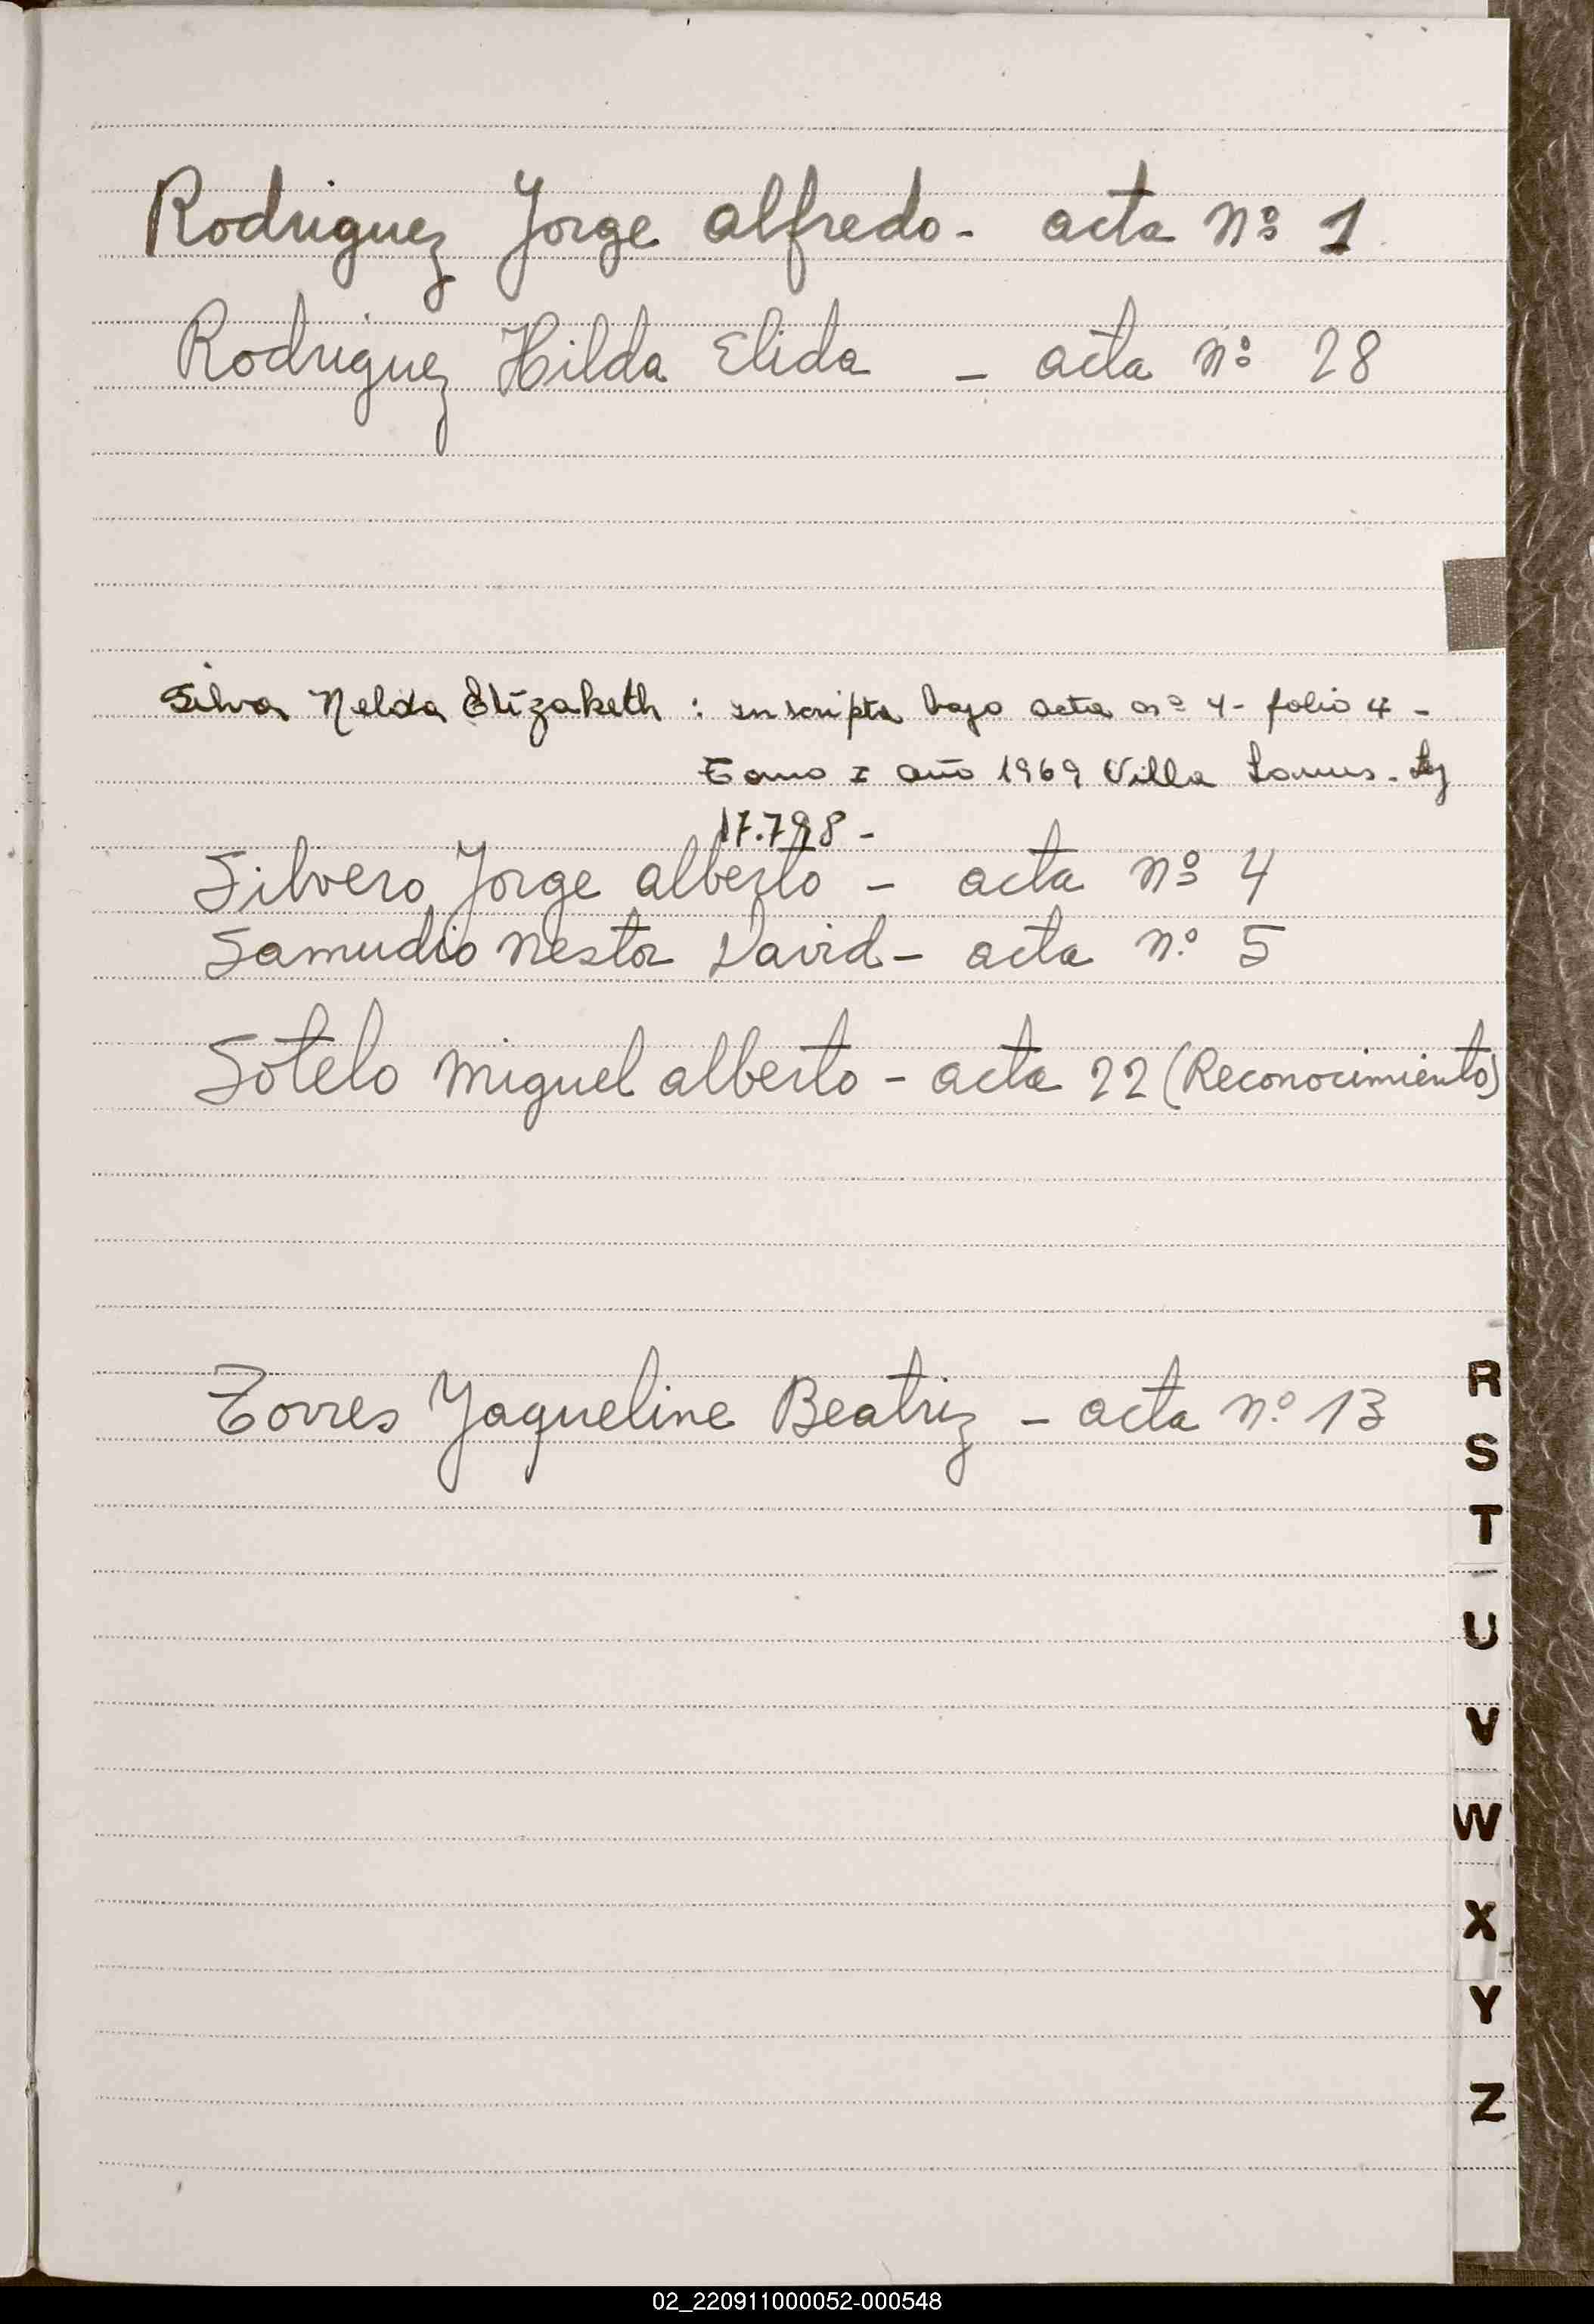 Rodriguez Jorge alfredo - acta nº 1
Rodriguez Hilda Elida - acta nº 28
Silva Nelda Elizabeth : inscripta bajo acta nº 4 - folio 4 -
Tomo I año 1969 Villa - Ley
17.798 -
Silvero Jorge alberto - acta nº 4
Samudio Nestor David - acta nº 5
Sotelo Miguel alberto - acta 22 (Reconocimiento)
Torres Yaqueline Beatriz - acta nº 13
R
S
T
U
V
W
X
Y
Z
02_220911000052-000548